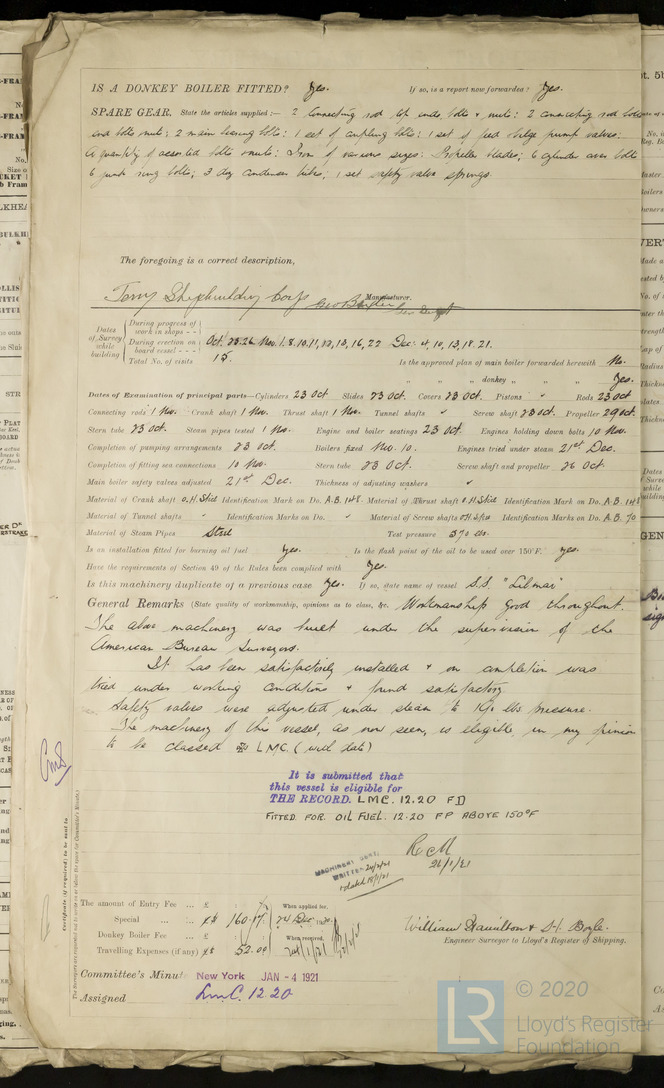 IS A DONKEY BOILER FITTED? Yes. If so, is a report now forwarded? Yes.
SPARE GEAR. State the articles supplied :— 2 Connecting rod top ends bolts & nuts: 2 connecting rod bottom
end bolts nuts; 2 main bearing bolts; 1 set of coupling bolts; 1 set of feed bilge pump valves:
A quantity of assorted bolts & nuts: Iron of various sizes: Propeller blades; 6 cylinder cover bolts
6 junk ring bolts; 3 doz condenser tubes; 1 set safety valve springs.
The foregoing is a correct description,
Terry Shipbuilding Corp Manufacturer.
Dates of Survey while building
During progress of work in shops - -
During erection on board vessel - - - Oct. 23. 26 Nov. 1. 8. 10. 11, 12, 13, 16, 22 Dec. 4, 10, 13, 18. 21.
Total No. of visits 15. Is the approved plan of main boiler forwarded herewith No.
" " donkey " " " Yes.
Dates of Examination of principal parts—Cylinders 23 Oct Slides 23 Oct. Covers 23 Oct. Pistons " Rods 23 Oct
Connecting rods 1 Nov. Crank shaft 1 Nov. Thrust shaft 1 Nov. Tunnel shafts " Screw shaft 23 Oct. Propeller 29 Oct.
Stern tube 23 Oct. Steam pipes tested 1 Nov. Engine and boiler seatings 23 Oct. Engines holding down bolts 10 Nov.
Completion of pumping arrangements 23 Oct. Boilers fixed Nov. 10. Engines tried under steam 21st Dec.
Completion of fitting sea connections 10 Nov. Stern tube 23 Oct. Screw shaft and propeller 26 Oct.
Main boiler safety valves adjusted 21st Dec. Thickness of adjusting washers "
Material of Crank shaft O.H. Steel Identification Mark on Do. A.B. 148. Material of Thrust shaft O.H. Steel Identification Mark on Do. A.B. 148
Material of Tunnel shafts " Identification Marks on Do. " Material of Screw shafts O.H. Steel Identification Marks on Do. A.B. 70
Material of Steam Pipes Steel Test pressure 570 lbs.
Is an installation fitted for burning oil fuel Yes. Is the flash point of the oil to be used over 150°F. yes.
Have the requirements of Section 49 of the Rules been complied with Yes.
Is this machinery duplicate of a previous case Yes. If so, state name of vessel S.S. "Libmar"
General Remarks (State quality of workmanship, opinions as to class, &c. Workmanship good throughout.
The above machinery was built under the supervision of the
American Bureau Surveyors.
It has been satisfactorily installed & on completion was
tried under working conditions & found satisfactory
Safety valves were adjusted under steam to 190 lbs pressure.
The machinery of this vessel, as now seen, is eligible, in my opinion
to be classed LMC. (with date)
It is submitted that
this vessel is eligible for
THE RECORD. LMC. 12.20 FD
FITTED FOR OIL FUEL. 12.20 FP ABOVE 150°F
26/1/21
MACHINERY DEPT.
WRITTEN
The amount of Entry Fee ... £ When applied for,
Special ... ... £$ 160.17 24 Dec 1920
Donkey Boiler Fee ... £ When received,
Travelling Expenses (if any) £$ 52.00
William Hamilton & H. Boyle.
Engineer Surveyor to Lloyd's Register of Shipping.
Committee's Minute New York JAN - 4 1921
Assigned LMC. 12.20
Certificate (if required) to be sent to
LR © 2020
Lloyd's Register
Foundation